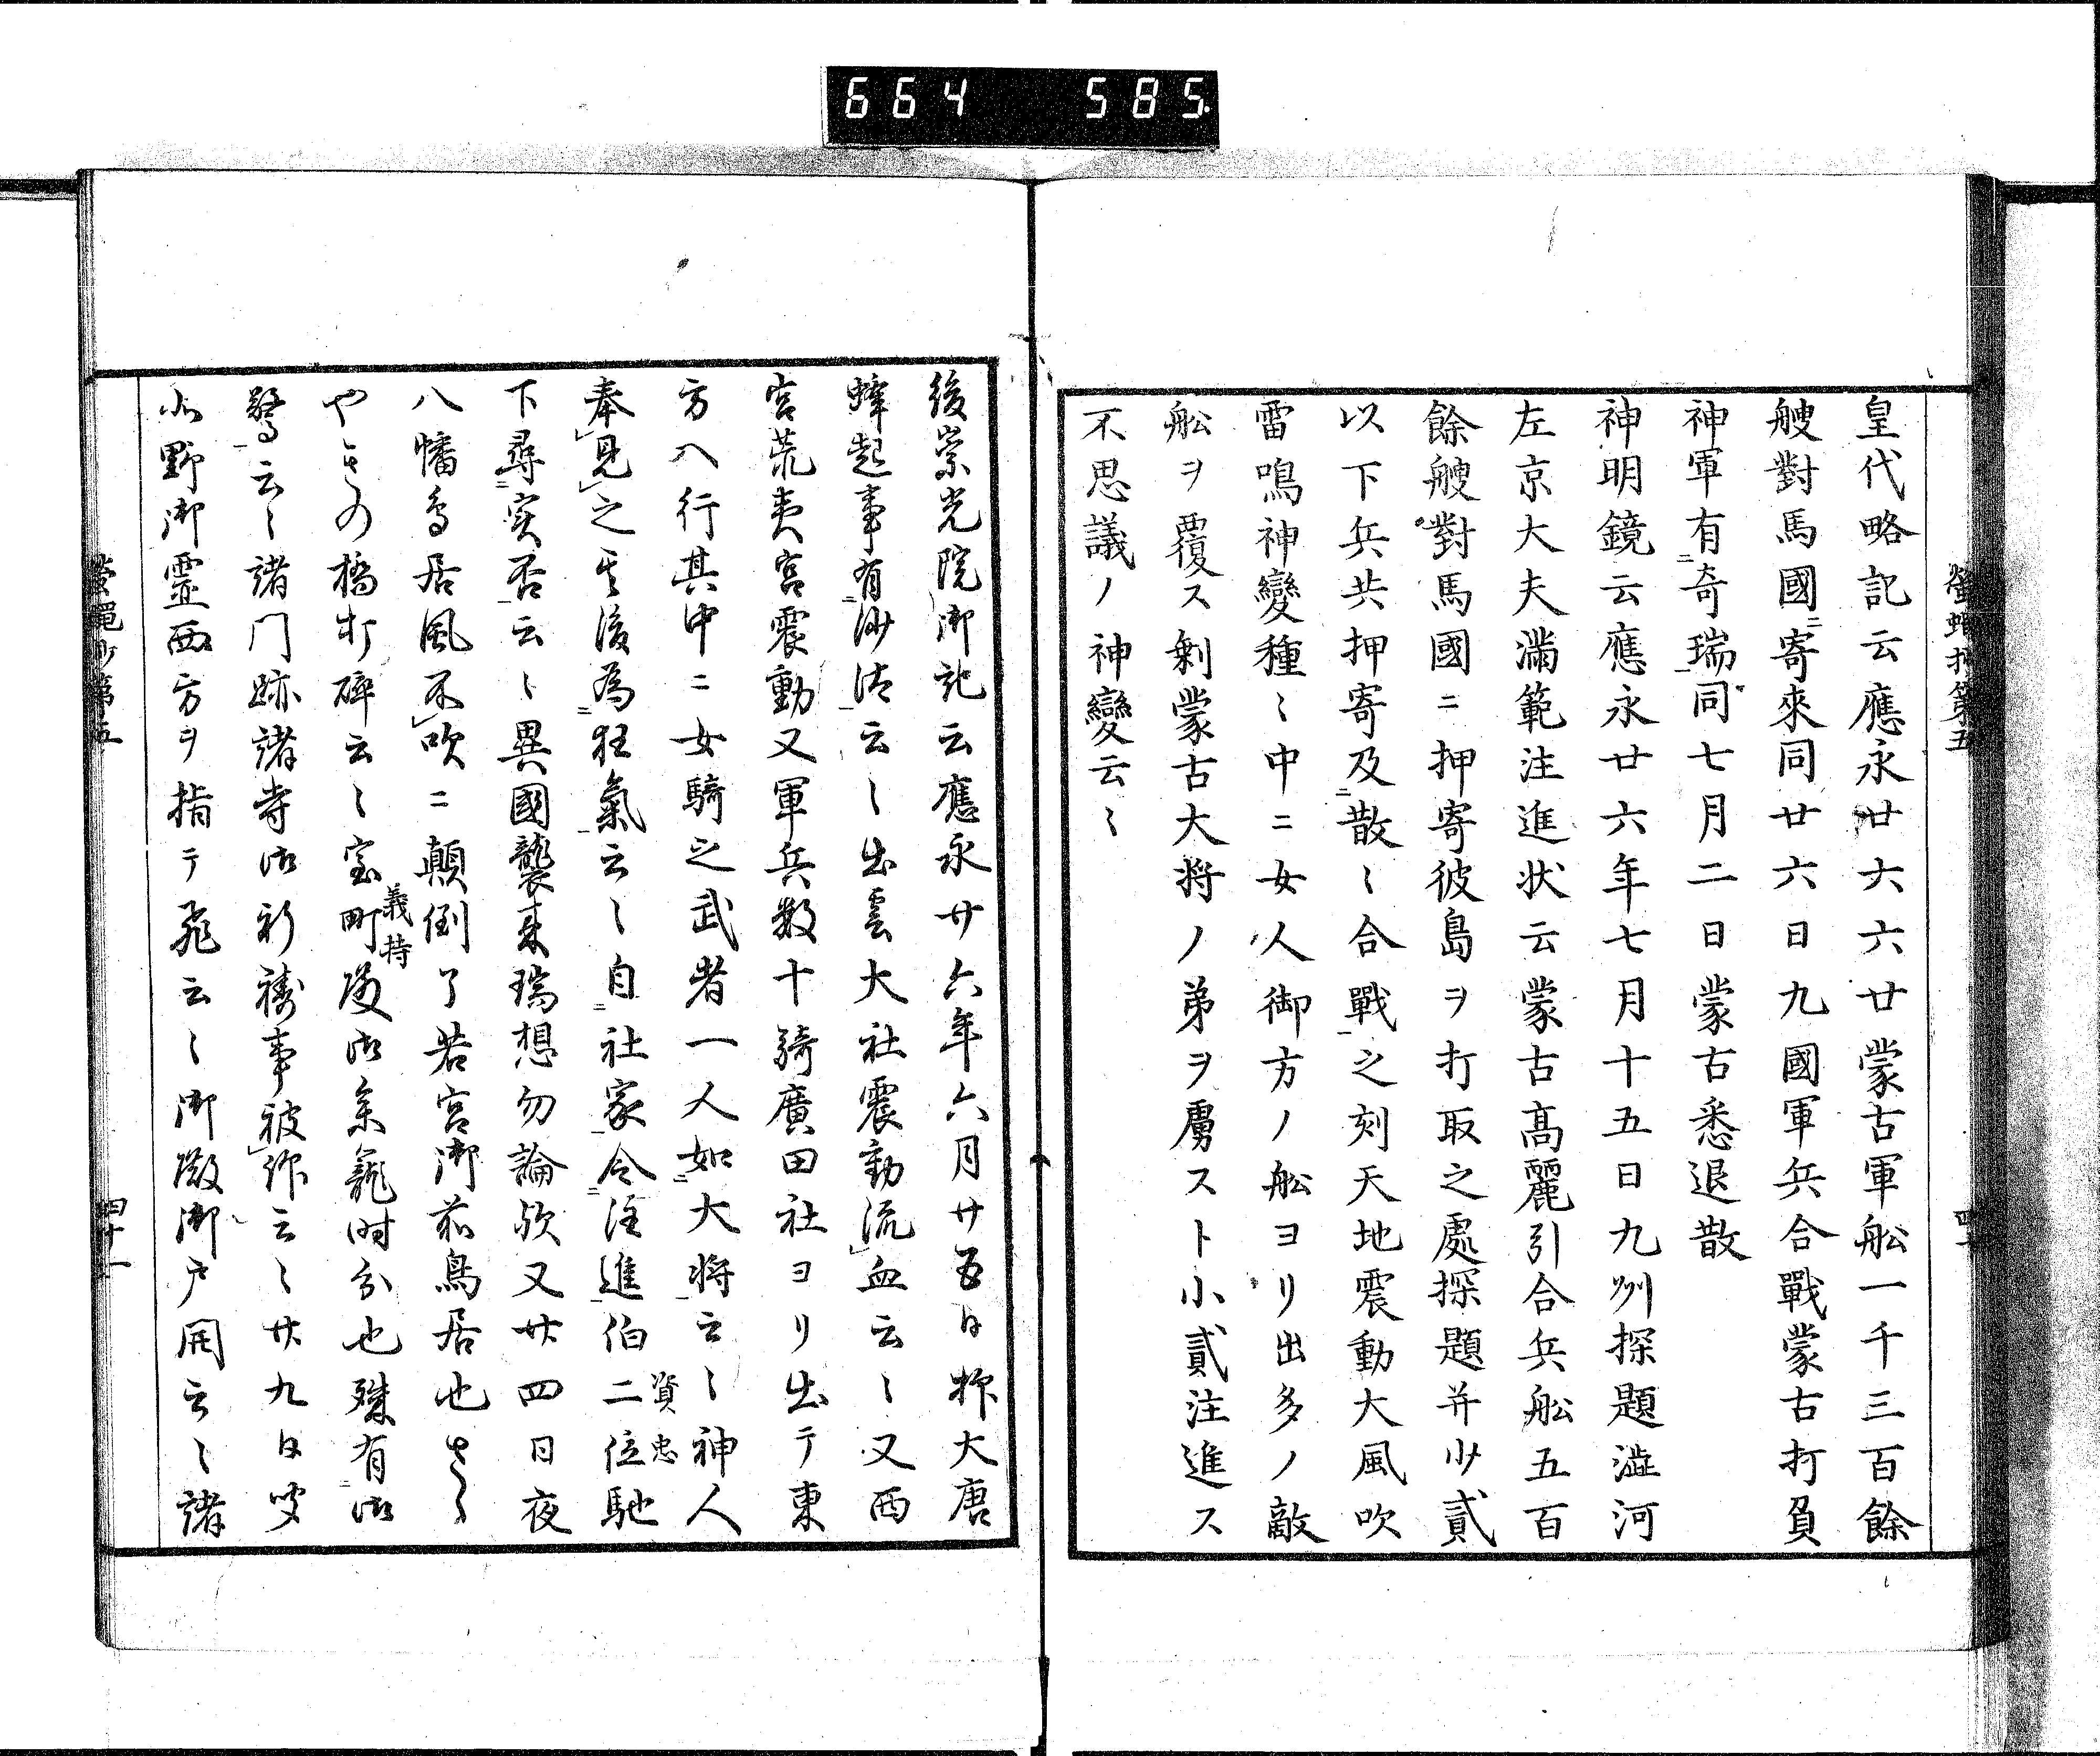 664 585.
螢蠅抄第五
皇代略記云應永廿六六廿蒙古軍舩一千三百餘
艘對馬國ニ寄來同廿六日九國軍兵合戰蒙古打負
神軍有奇瑞同七月二日蒙古悉退散
神明鏡云應永廿六年七月十五日九州探題澁河
左京大夫滿範注進状云蒙古高麗引合兵舩五百
餘艘對馬國ニ押寄彼島ヲ打取之處探題并少貳
以下兵共押寄及散〻合戰之刻天地震動大風吹
雷鳴神變種〻中ニ女人御方ノ舩ヨリ出多ノ敵
舩ヲ覆ス剰蒙古大将ノ弟ヲ虜スト小貳注進ス
不思議ノ神變云〻
後崇光院御記云應永廿六年六月廿五日抑大唐
蜂起事有沙汰云〻出雲大社震動流血云〻又西
宮荒夷宮震動又軍兵数十騎廣田社ヨリ出テ東
方ヘ行其中ニ女騎之武者一人如大将云〻神人
奉見之其後為狂氣云〻自社家令注進伯二位資忠馳
下尋実否云〻異國襲来瑞想勿論歟又廿四日夜
八幡鳥居風不吹ニ顛倒了若宮御前鳥居也さゝ
やきの橋打碎云〻室町殿義持御参籠時分也殊有御
驚云〻諸门跡諸寺御祈祷事被作云〻廿九日
北野御霊西方ヲ指テ飛云〻御殿御戸開云〻諸
螢蠅抄第五
四十一